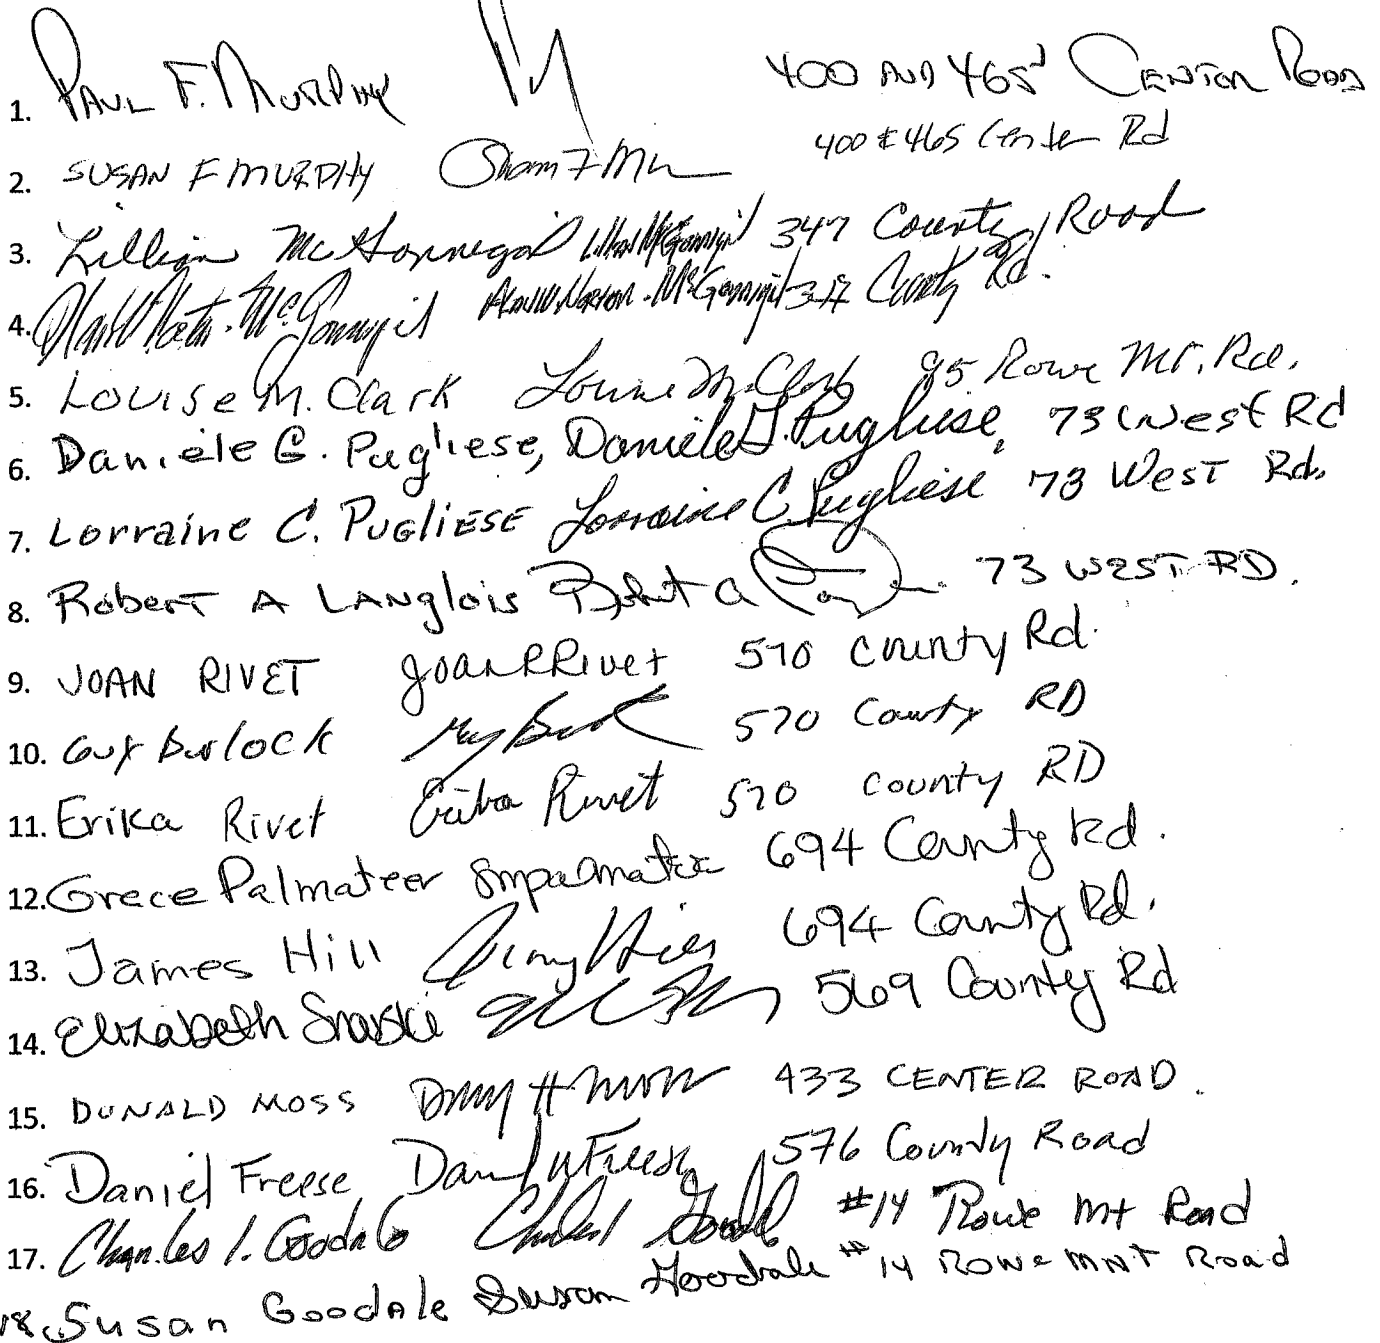 1. PAUL F. MURPHY 400 AND 465 CENTOR ROAD
2. SUSAN F MURPHY 400 & 465 Center Rd
3. Lillian McGonnegal Lillian McGonnigil 347 County Road
4. McGonnigil Norton-McGonnigil 347 County Rd.
5. Louise M. Clark Louise M. Clark 95 Rowe Mt. Rd.
6. Daniele G. Pugliese, Daniele G. Pugliese, 73 West Rd
7. Lorraine C. PUGLIESE Lorraine C. Pugliese 73 West Rd.
8. Robert A LANglois Robert A 73 WEST RD.
9. JOAN RIVET Joan R Rivet 570 County Rd.
10. Guy Burlock Guy 570 County RD
11. Erika Rivet Erika Rivet 570 County RD
12. Grece Palmateer GMPalmateer 694 County Rd.
13. James Hill 694 County Rd.
14. Elizabeth Snaskie 569 County Rd
15. DONALD MOSS 433 CENTER ROAD.
16. Daniel Freese Daniel W Freese 576 County Road
17. Charles I. Goodale Charles I Goodale #14 Rowe Mt Road
18. Susan Goodale Susan Goodale #14 Rowe MNT Road